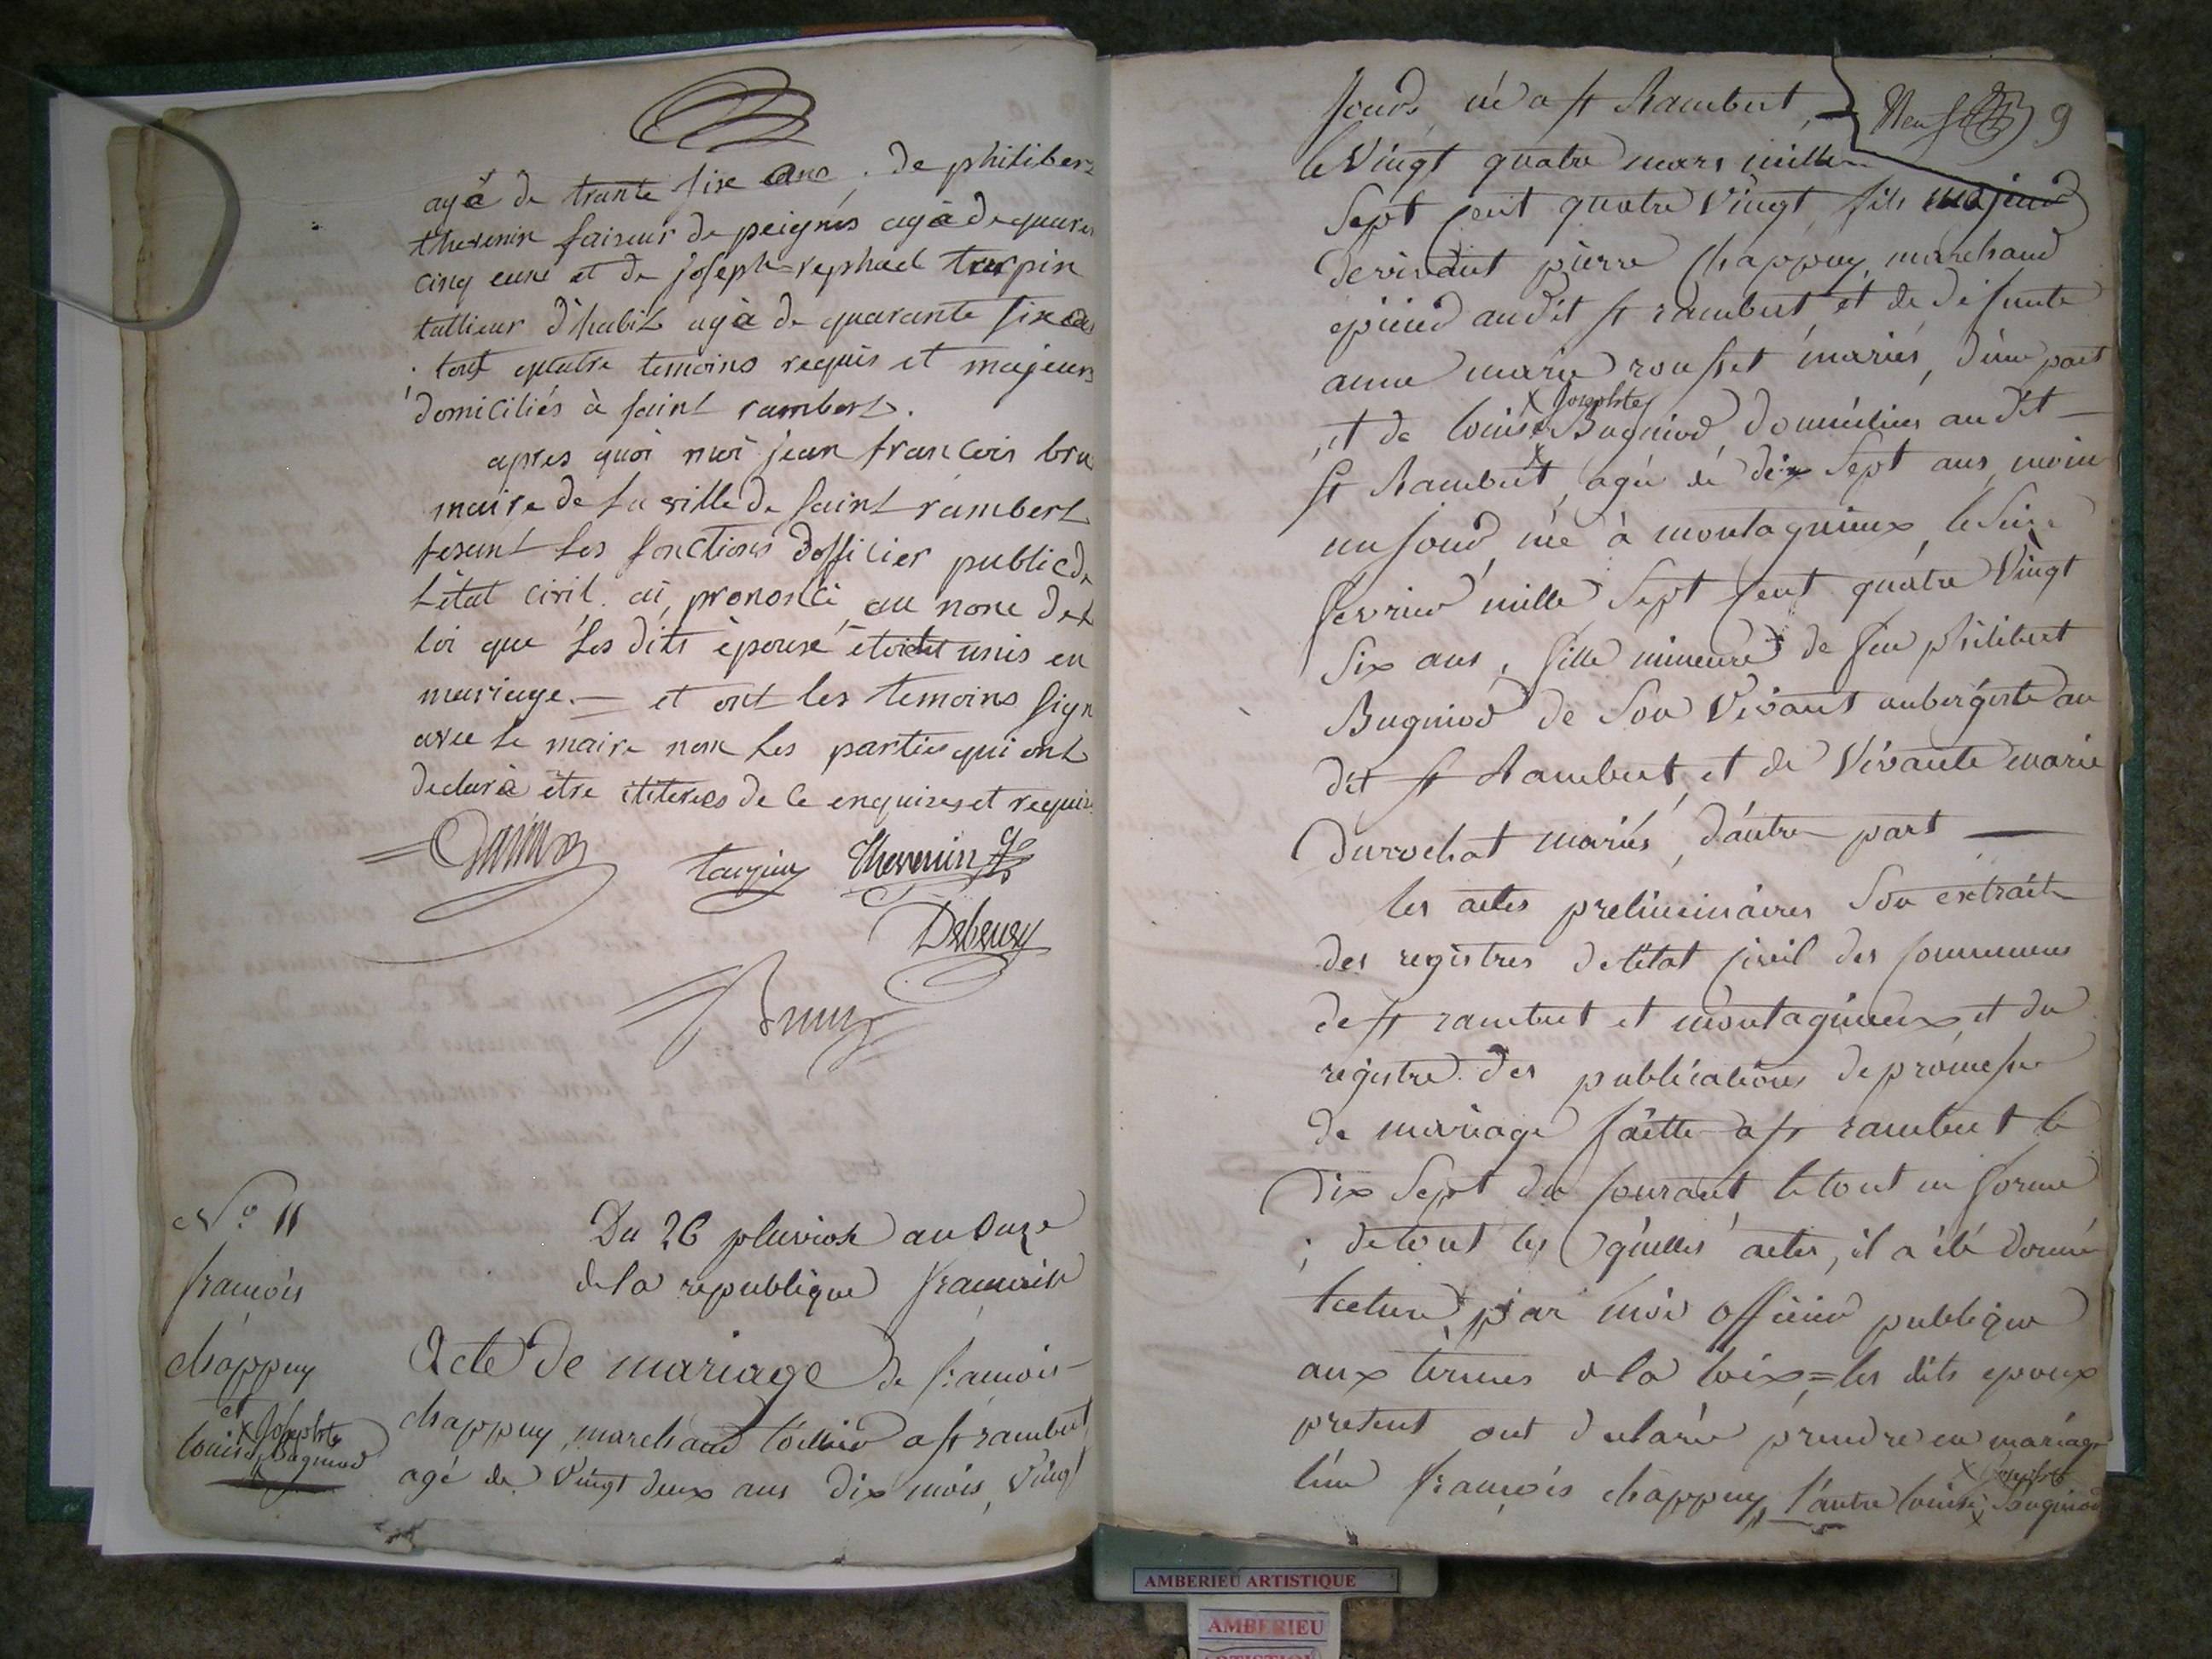 agé de trante sixe ans, de philiber
thevenin faiseur de peignes agé de quare
cinq eune et de joseph=rephael turpin
tallieur d'habit agé de quarante sixe
tout quatre temoins requis et majeurs
domiciliés à saint rambert.
apres quoi moi jean francois bru
maire de la ville de saint rambert
fesant les fonctions d'officier public de
l'état civil. ai prononcé au nome de l
loi que les dits épouse étoidet unis en
mariage. — et ont les temoins sign
avec le maire non les parties qui ont
declaré etre ititeres de ce enquizes et requi
turpin Thevenin
Debeney
Brun
N.° 11
francois
chappuy
et
x Josephte
louise Bugniod
Du 26 pluviose an onze
de la republique francaise
Acte de mariage de francois
chappuy, marchand toillier a st rambert
agé de Vingt deux ans dix mois, Vingt
jours, né a st Rambert,
Neuf 9
le Vingt quatre mars mille
Sept cent quatre Vingt fils majeur
de vivant pierre Chappuy marchand
epicier audit st rambert et de défunte
anne marie rousset mariés, d'une part
x Josephte
, et de louise Bugniod domiciliée au dit —
st Rambert, agée de dix Sept ans, moin
un jour, née à montagnieux le Seize
fevrier mille Sept cent quatre Vingt
Six ans, fille mineure de feu philibert
Bugniod de Son Vivant aubergiste au
dit st Rambert, et de Vivante marie
Durochat mariés, d'autre part —
les actes preliminaires Son extrait
des registres de l'état civil des communes
de st rambert et montagnieux et du
registre des publications de promesse
de mariage faitte a st rambert le
Dix Sept du courant, le tout en forme
; de tout les quelles actes, il a été donné
lecture par moi officier publique
aux termes de la loix = les dits epoux
present ont declaré prendre en mariage
x Josephte
l'un francois chappuy, l'autre louise Bugniod
AMBERIEU ARTISTIQUE
AMBERIEU
ARTISTIQUE